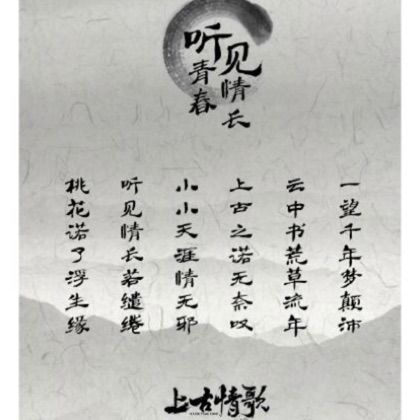 听见
青春
情长
一望千年梦颠沛
云中书荒草流年
上古之诺无奈叹
小小天涯情无邪
听见情长若缱绻
桃花诺了浮生缘
上古情歌